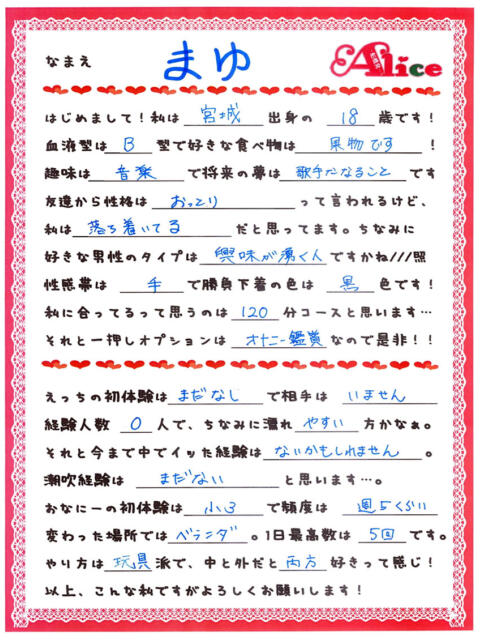 なまえ まゆ Alice
はじめまして！私は 宮城 出身の 18 歳です！
血液型は B 型で好きな食べ物は 果物です ！
趣味は 音楽 で将来の夢は 歌手になること です
友達から性格は おっとり って言われるけど、
私は 落ち着いてる だと思ってます。ちなみに
好きな男性のタイプは 興味が湧く人 ですかね///照
性感帯は 手 で勝負下着の色は 黒 色です！
私に合ってるって思うのは 120 分コースと思います…
それと一押しオプションは オナニー鑑賞 なので是非！！
えっちの初体験は まだなし で相手は いません
経験人数 0 人で、ちなみに濡れ やすい 方かなぁ。
それと今まで中でイッた経験は ないかもしれません 。
潮吹経験は まだない と思います…。
やり方は 玩具 派で、中と外だと 両方 好きって感じ！
以上、こんな私ですがよろしくお願いします！